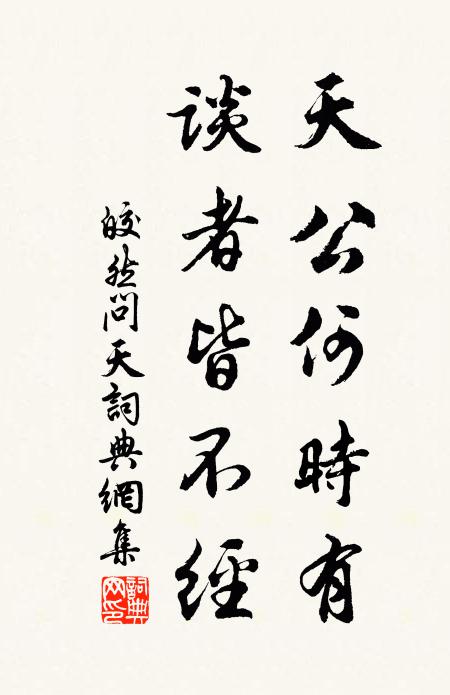 天公何時有
談者皆不經
皎然問天詞典網集
詞典網印